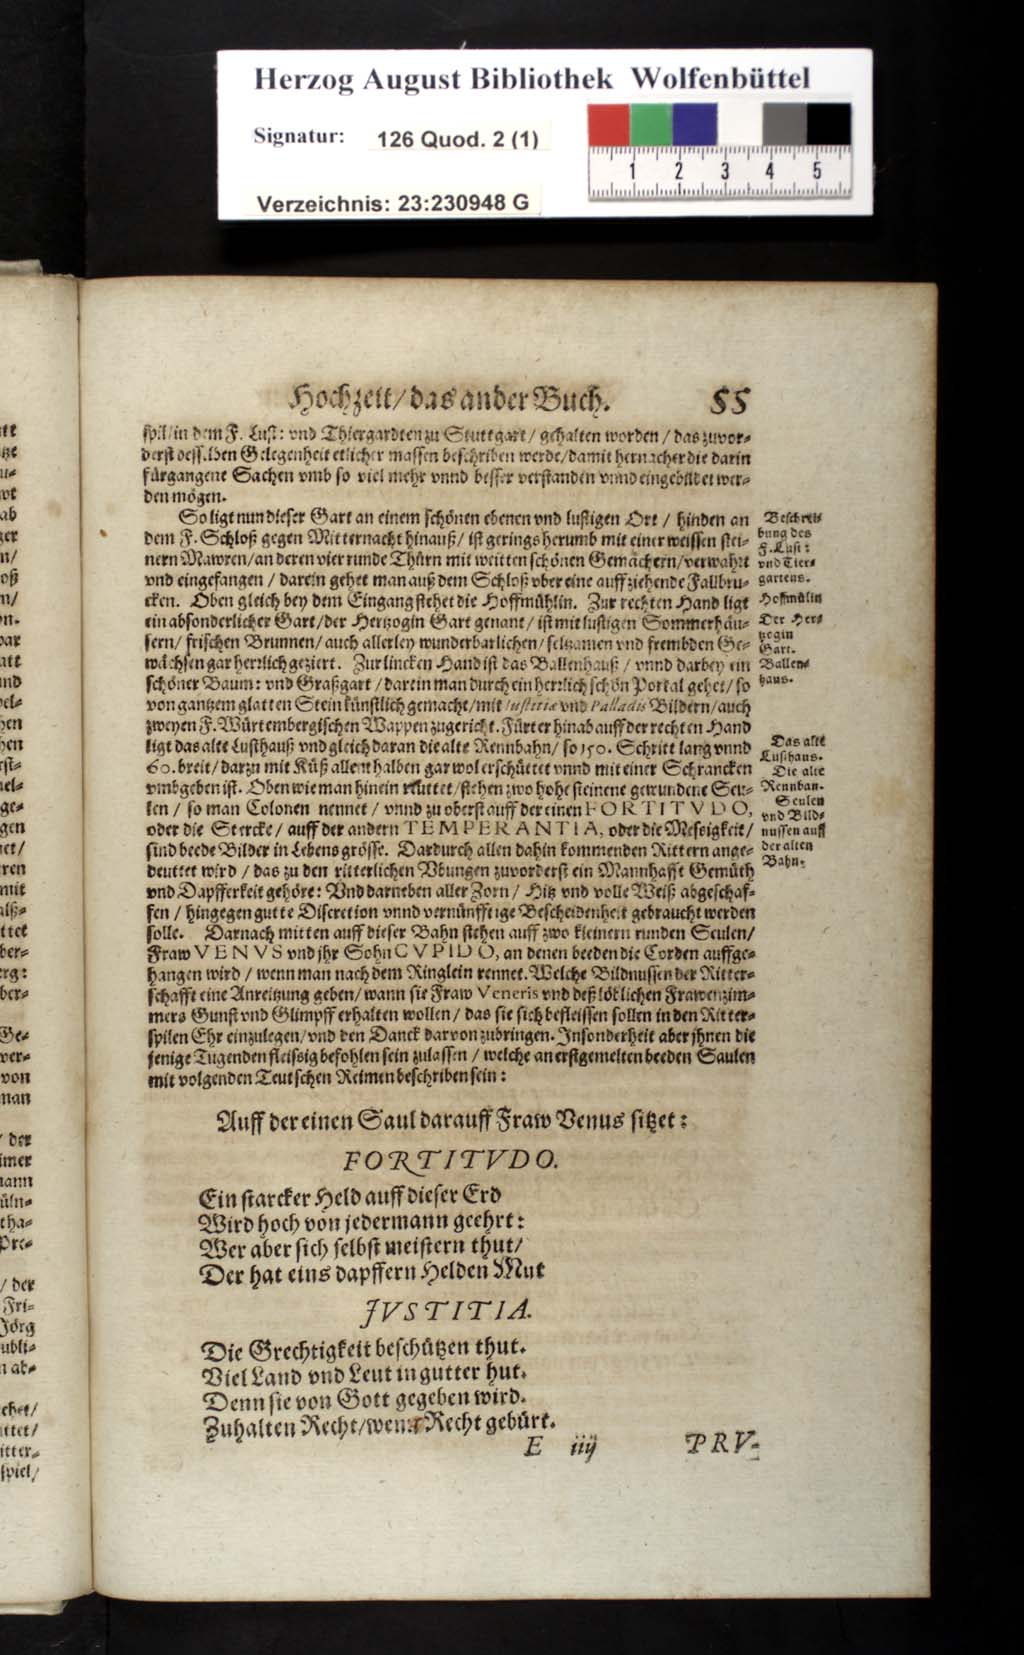 Herzog August Bibliothek Wolfenbüttel
Signatur: 126 Quod. 2 (1)
1 2 3 4 5
Verzeichnis: 23:230948 G
Hochzeit/das ander Buch. 55
spil/in dem F. Lust: vnd Thiergardten zu Stuttgart/gehalten worden/das zuvor-
derst desselben Gelegenheit etlicher massen beschriben werde/damit hernacher die darin
fürgangene Sachen vmb so viel mehr vnnd besser verstanden vnnd eingebildet wer-
den mögen.
So ligt nun dieser Gart an einem schönen ebenen vnd lustigen Ort/hinden an
dem F. Schloß gegen Mitternacht hinauß/ist gerings herumb mit einer weissen stei-
nern Mawren/an deren vier runde Thürn mit weitten schönen Gemächern/verwahrt
vnd eingefangen/darein gehet man auß dem Schloß vber eine auffziehende Fallbru-
cken. Oben gleich bey dem Eingang stehet die Hoffmühlin. Zur rechten Hand ligt
ein absonderlicher Gart/der Hertzogin Gart genant/ist mit lustigen Sommerhäu-
sern/frischen Brunnen/auch allerley wunderbarlichen/seltzamen vnd frembden Ge-
wächsen gar herrlich geziert. Zur lincken Hand ist das Ballenhauß/vnnd darbey ein
schöner Baum: vnd Graßgart/darein man durch ein herrlich schön Portal gehet/so
von gantzem glatten Stein künstlich gemacht/mit Iustitiæ vnd Palladis Bildern/auch
zweyen F. Würtembergischen Wappen zugericht. Fürter hinab auff der rechten Hand
ligt das alte Lusthauß vnd gleich daran die alte Rennbahn/so 150. Schritt lang vnnd
60. breit/darzu mit Küß allenthalben gar wol erschüttet vnnd mit einer Schrancken
vmbgeben ist. Oben wie man hinein reuttet/stehen zwo hohe steinene gewundene Seu-
len/so man Colonen nennet/vnnd zu oberst auff der einen FORTITVDO,
oder die Stercke/auff der andern TEMPERANTIA, oder die Messigkeit/
sind beede Bilder in Lebensgrösse. Dardurch allen dahin kommenden Rittern ange-
deuttet wird/das zu den ritterlichen Vbungen zuvorderst ein Mannhafft Gemüth
vnd Dapfferkeit gehöre: Vnd darneben aller Zorn/Hitz vnd volle Weiß abgeschaf-
fen/hingegen gutte Discretion vnnd vernünfftige Bescheidenheit gebraucht werden
solle. Darnach mitten auff dieser Bahn stehen auff zwo kleinern runden Seulen/
Fraw VENVS vnd jhr Sohn CVPIDO, an denen beeden die Corden auffge-
hangen wird/wenn man nach dem Ringlein rennet. Welche Bildnussen der Ritter-
schafft eine Anreitzung geben/wann sie Fraw Veneris vnd deß löblichen Frawenzim-
mers Gunst vnd Glimpff erhalten wollen/das sie sich befleissen sollen in den Ritter-
spilen Ehr einzulegen/vnd den Danck darvon zubringen. Insonderheit aber jhnen die
jenige Tugenden fleissig befohlen sein zulassen/welche an erstgemelten beeden Saulen
mit volgenden Teutschen Reimen beschriben sein:
Beschrei-
bung des
F. Lust:
vnd Tier-
gartens.
Hoffmülin
Der Her-
tzogin
Gart.
Ballen-
haus.
Das alte
Lusthaus.
Die alte
Rennban.
Seulen
vnd Bild-
nussen auff
der alten
Bahn.
Auff der einen Saul darauff Fraw Venus sitzet:
FORTITVDO.
Ein starcker Held auff dieser Erd
Wird hoch von jedermann geehrt:
Wer aber sich selbst meistern thut/
Der hat eins dapffern Helden Mut
JVSTITIA.
Die Grechtigkeit beschützen thut.
Viel Land vnd Leut in gutter hut.
Denn sie von Gott gegeben wird.
Zuhalten Recht/wem Recht gebürt.
E iiij PRV-